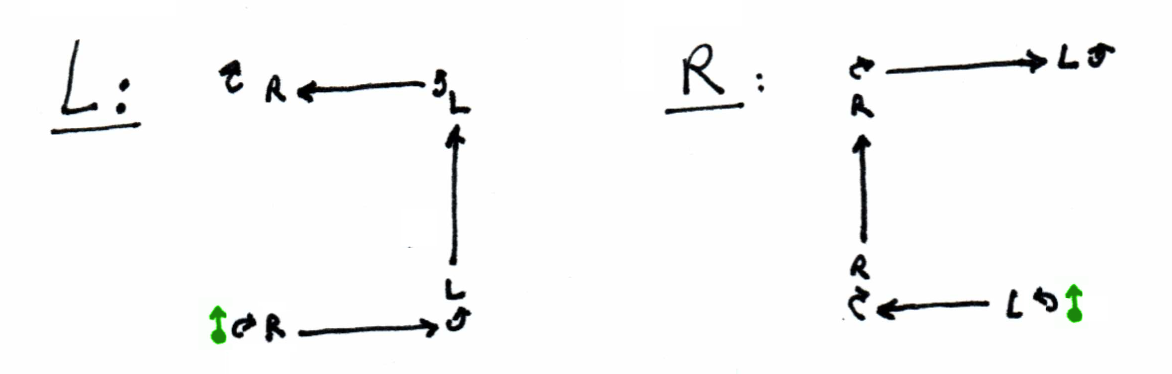 L:
R L
L
R
R:
L
R
R
L